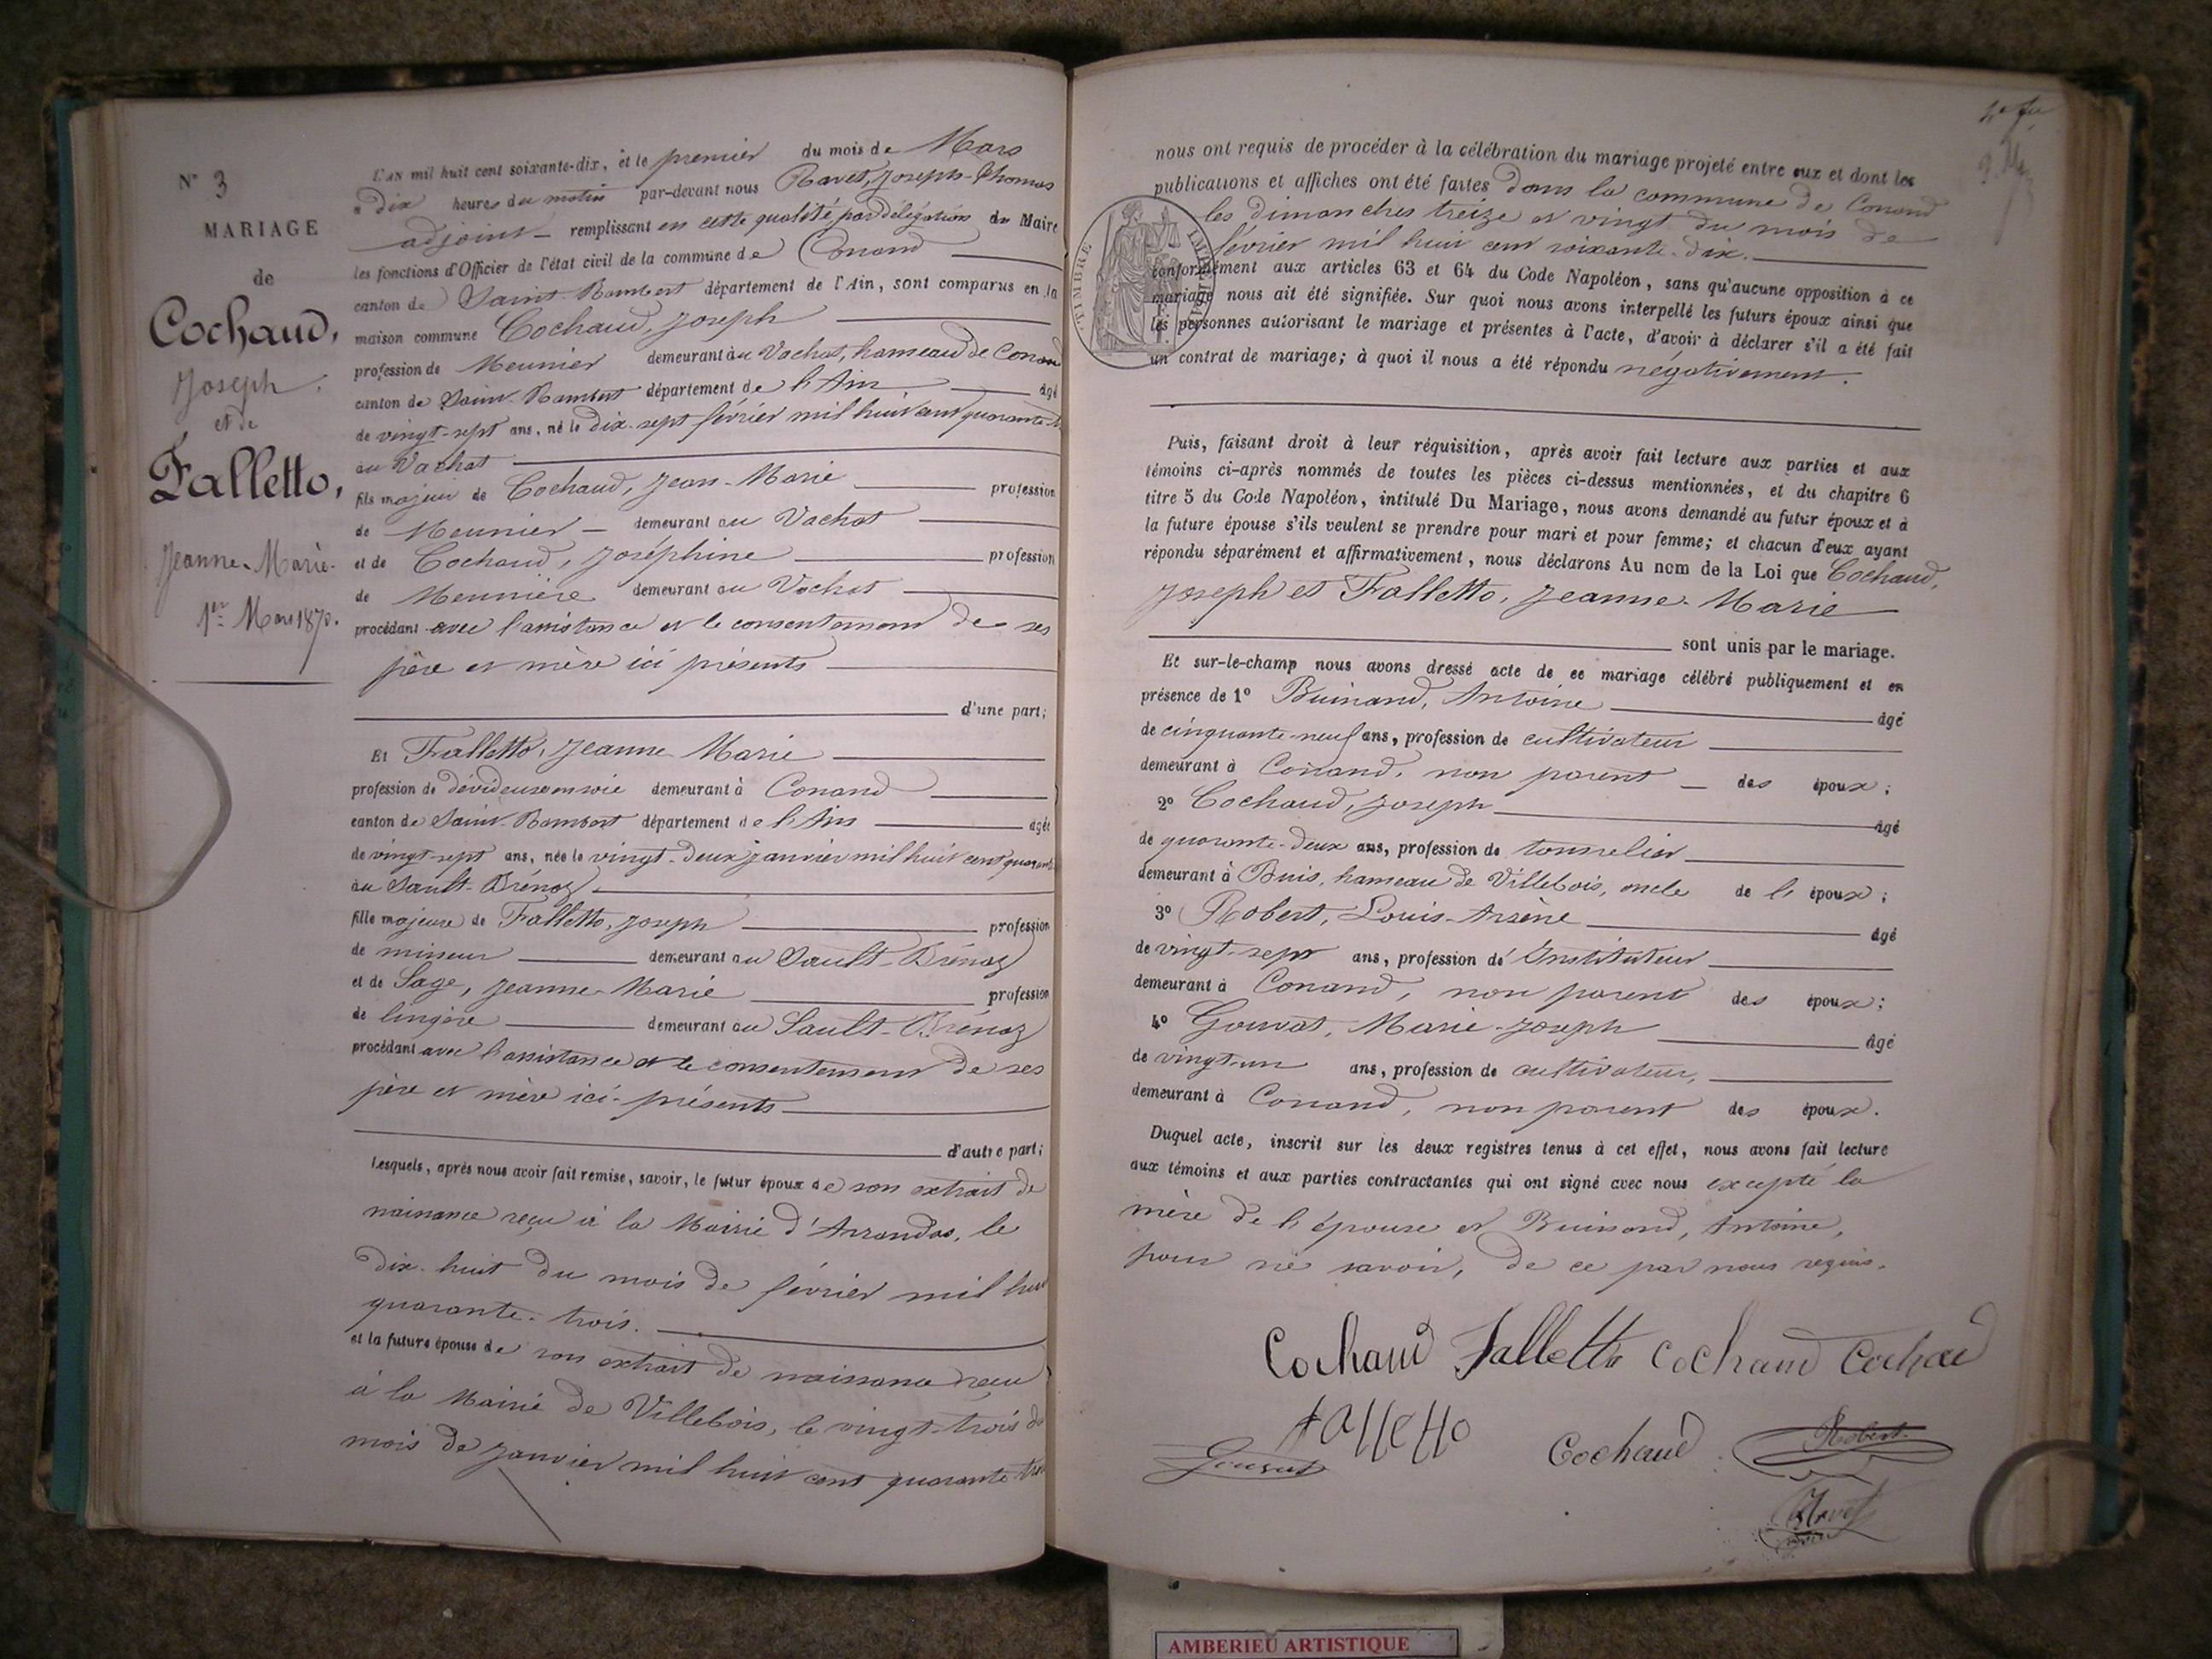 N° 3
MARIAGE
de
Cochaud,
Joseph,
et de
Falletto,
Jeanne-Marie.
1er Mars 1870.
L'AN mil huit cent soixante-dix, et le premier du mois de Mars
à dix heures du matin par-devant nous Ravet, Joseph-Thomas
adjoint remplissant en cette qualité, par délégation du Maire
les fonctions d'Officier de l'état civil de la commune de Conand
canton de Saint-Rambert département de l'Ain, sont comparus en la
maison commune Cochaud, Joseph
profession de Meunier demeurant au Vachat, hameau de Conand
canton de Saint-Rambert département de l'Ain âgé
de vingt-sept ans, né le dix-sept février mil huit cent quarante
au Vachat
fils majeur de Cochaud, Jean-Marie profession
de Meunier demeurant au Vachat
et de Cochaud, Joséphine profession
de Meunière demeurant au Vachat
procédant avec l'assistance et le consentement de ses
père et mère ici présents
d'une part;
Et Falletto, Jeanne-Marie
profession de dévideuse en soie demeurant à Conand
canton de Saint-Rambert département de l'Ain âgée
de vingt-sept ans, née le vingt-deux janvier mil huit cent quarante
au Sault-Brénaz
fille majeure de Falletto, Joseph profession
de mineur demeurant au Sault-Brénaz
et de Sage, Jeanne-Marie profession
de lingère demeurant au Sault-Brénaz
procédant avec l'assistance et le consentement de ses
père et mère ici-présents
d'autre part;
Lesquels, après nous avoir fait remise, savoir, le futur époux de son extrait de
naissance reçu à la Mairie d'Arrandas, le
dix-huit du mois de février mil huit
quarante-trois.
et la future épouse de son extrait de naissance reçu
à la Mairie de Villebois, le vingt-trois du
mois de janvier mil huit cent quarante-trois
nous ont requis de procéder à la célébration du mariage projeté entre eux et dont les
publications et affiches ont été faites dans la commune de Conand
les dimanches treize et vingt du mois de
février mil huit cent soixante-dix.
TIMBRE IMPERIAL
conformément aux articles 63 et 64 du Code Napoléon, sans qu'aucune opposition à ce
mariage nous ait été signifiée. Sur quoi nous avons interpellé les futurs époux ainsi que
les personnes autorisant le mariage et présentes à l'acte, d'avoir à déclarer s'il a été fait
un contrat de mariage; à quoi il nous a été répondu négativement.
Puis, faisant droit à leur réquisition, après avoir fait lecture aux parties et aux
témoins ci-après nommés de toutes les pièces ci-dessus mentionnées, et du chapitre 6
titre 5 du Code Napoléon, intitulé Du Mariage, nous avons demandé au futur époux et à
la future épouse s'ils veulent se prendre pour mari et pour femme; et chacun d'eux ayant
répondu séparément et affirmativement, nous déclarons Au nom de la Loi que Cochaud,
Joseph et Falletto, Jeanne-Marie
sont unis par le mariage.
Et sur-le-champ nous avons dressé acte de ce mariage célébré publiquement et en
présence de 1° Buinand, Antoine âgé
de cinquante-neuf ans, profession de cultivateur
demeurant à Conand, non parent des époux;
2° Cochaud, Joseph âgé
de quarante-deux ans, profession de tonnelier
demeurant à Buis, hameau de Villebois, oncle de l'époux;
3° Robert, Louis-Arsène âgé
de vingt-sept ans, profession d'Instituteur
demeurant à Conand, non parent des époux;
4° Gouvat, Marie-Joseph âgé
de vingt-un ans, profession de cultivateur,
demeurant à Conand, non parent des époux.
Duquel acte, inscrit sur les deux registres tenus à cet effet, nous avons fait lecture
aux témoins et aux parties contractantes qui ont signé avec nous excepté la
mère de l'épouse et Buinand, Antoine,
pour ne savoir, de ce par nous requis.
Cochaud Falletto Cochaud Cochau
falletto
Gouvat Cochaud Robert
Ravet
AMBERIEU ARTISTIQUE